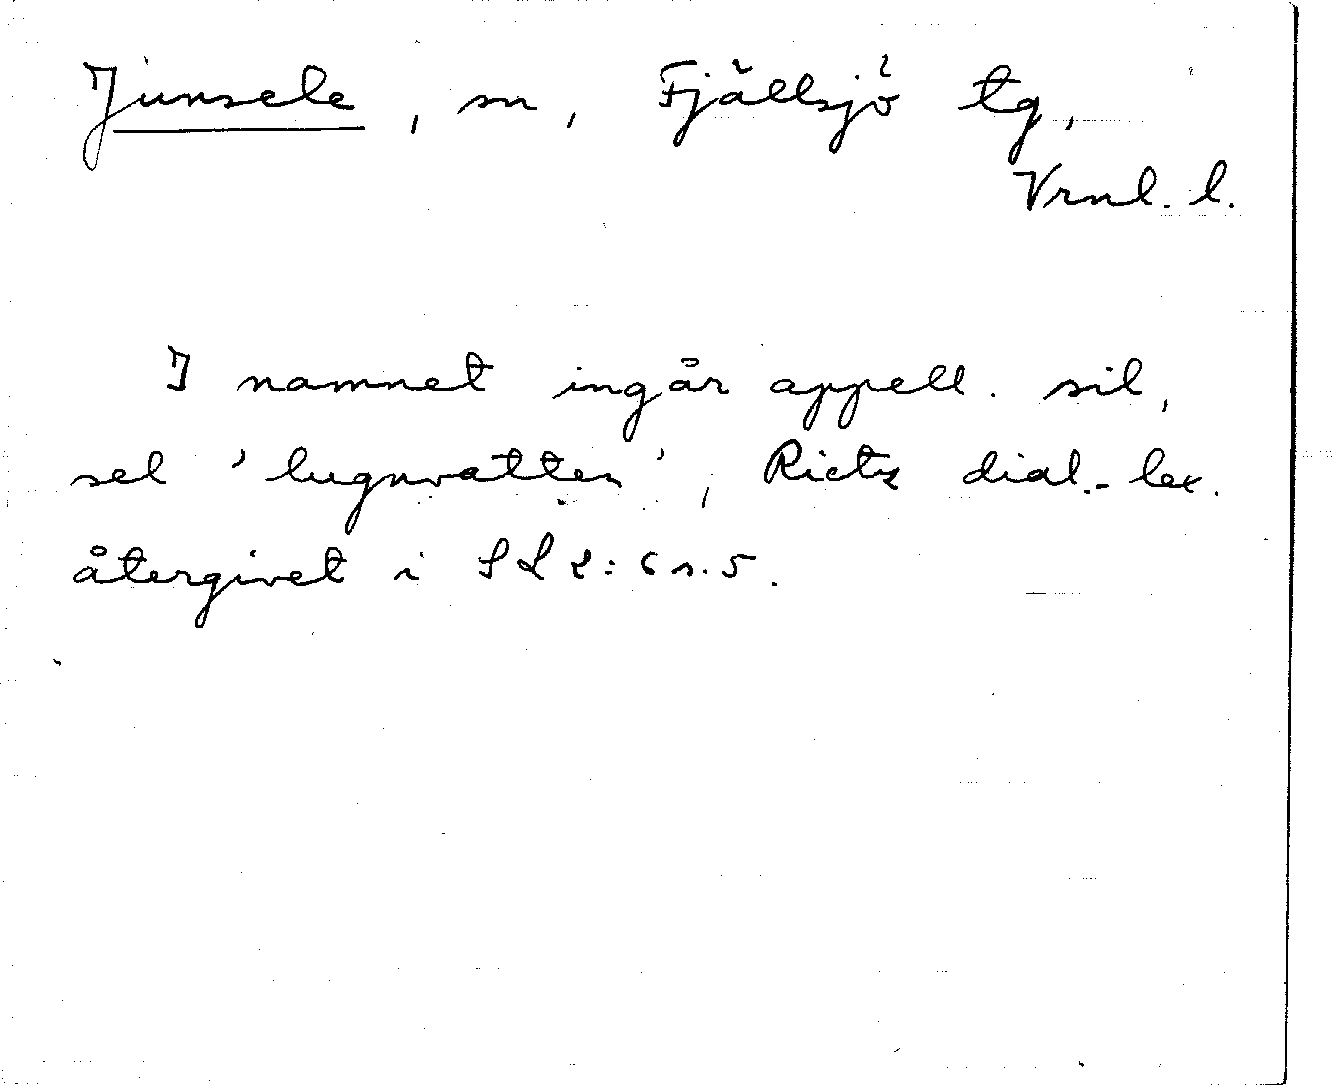 Junsele, sn, Fjällsjö tg,
Vrnl. l.
I namnet ingår appell. sil,
sel 'lugnvatten', Rietz dial.-lex.
återgivet i SL 2:6 s. 5.